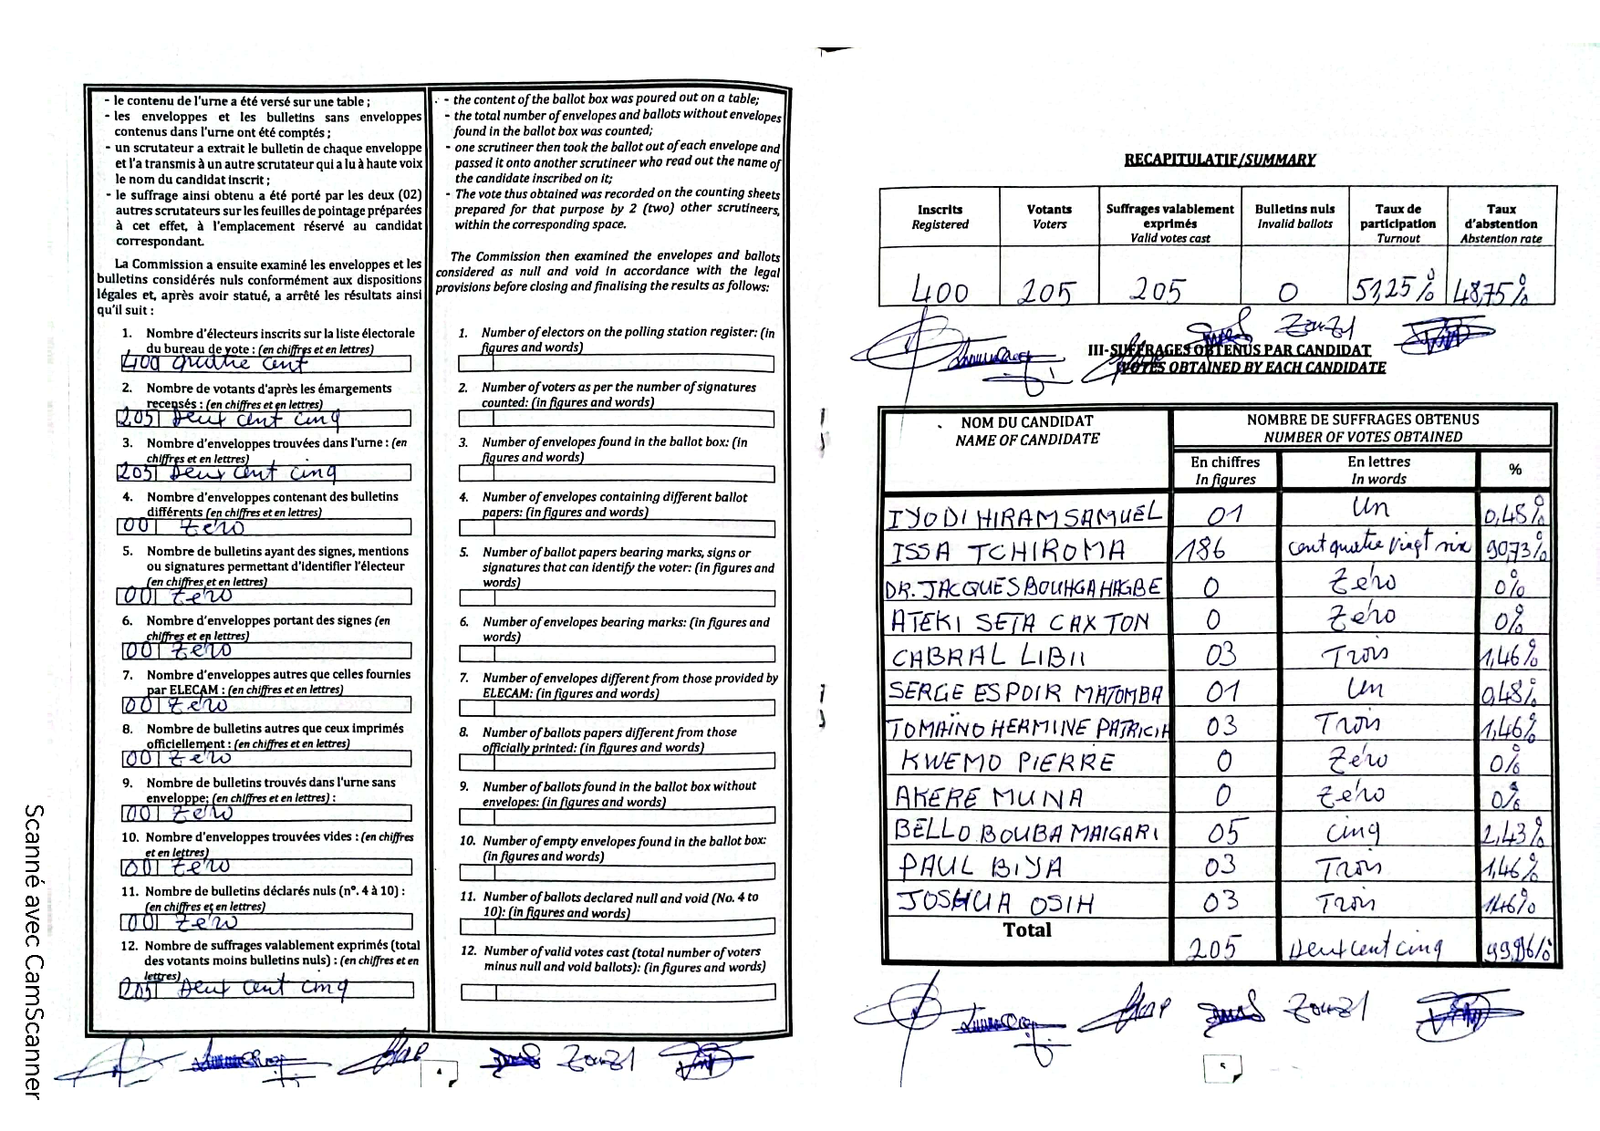 - le contenu de l'urne a été versé sur une table ;
- les enveloppes et les bulletins sans enveloppes
contenus dans l'urne ont été comptés ;
- un scrutateur a extrait le bulletin de chaque enveloppe
et l'a transmis à un autre scrutateur qui a lu à haute voix
le nom du candidat inscrit ;
- le suffrage ainsi obtenu a été porté par les deux (02)
autres scrutateurs sur les feuilles de pointage préparées
à cet effet, à l'emplacement réservé au candidat
correspondant.
La Commission a ensuite examiné les enveloppes et les
bulletins considérés nuls conformément aux dispositions
légales et, après avoir statué, a arrêté les résultats ainsi
qu'il suit :
1. Nombre d'électeurs inscrits sur la liste électorale
du bureau de vote : (en chiffres et en lettres)
400 quatre cent
2. Nombre de votants d'après les émargements
recensés : (en chiffres et en lettres)
205 Deux cent cinq
3. Nombre d'enveloppes trouvées dans l'urne : (en
chiffres et en lettres)
205 Deux cent cinq
4. Nombre d'enveloppes contenant des bulletins
différents (en chiffres et en lettres)
00 Zéro
5. Nombre de bulletins ayant des signes, mentions
ou signatures permettant d'identifier l'électeur
(en chiffres et en lettres)
00 Zéro
6. Nombre d'enveloppes portant des signes (en
chiffres et en lettres)
00 Zéro
7. Nombre d'enveloppes autres que celles fournies
par ELECAM : (en chiffres et en lettres)
00 Zéro
8. Nombre de bulletins autres que ceux imprimés
officiellement : (en chiffres et en lettres)
00 Zéro
9. Nombre de bulletins trouvés dans l'urne sans
enveloppe: (en chiffres et en lettres) :
00 Zéro
10. Nombre d'enveloppes trouvées vides : (en chiffres
et en lettres)
00 Zéro
11. Nombre de bulletins déclarés nuls (n°. 4 à 10) :
(en chiffres et en lettres)
00 Zéro
12. Nombre de suffrages valablement exprimés (total
des votants moins bulletins nuls) : (en chiffres et en
lettres)
205 Deux cent cinq
- the content of the ballot box was poured out on a table;
- the total number of envelopes and ballots without envelopes
found in the ballot box was counted;
- one scrutineer then took the ballot out of each envelope and
passed it onto another scrutineer who read out the name of
the candidate inscribed on it;
- The vote thus obtained was recorded on the counting sheets
prepared for that purpose by 2 (two) other scrutineers,
within the corresponding space.
The Commission then examined the envelopes and ballots
considered as null and void in accordance with the legal
provisions before closing and finalising the results as follows:
1. Number of electors on the polling station register: (in
figures and words)
2. Number of voters as per the number of signatures
counted: (in figures and words)
3. Number of envelopes found in the ballot box: (in
figures and words)
4. Number of envelopes containing different ballot
papers: (in figures and words)
5. Number of ballot papers bearing marks, signs or
signatures that can identify the voter: (in figures and
words)
6. Number of envelopes bearing marks: (in figures and
words)
7. Number of envelopes different from those provided by
ELECAM: (in figures and words)
8. Number of ballots papers different from those
officially printed: (in figures and words)
9. Number of ballots found in the ballot box without
envelopes: (in figures and words)
10. Number of empty envelopes found in the ballot box:
(in figures and words)
11. Number of ballots declared null and void (No. 4 to
10): (in figures and words)
12. Number of valid votes cast (total number of voters
minus null and void ballots): (in figures and words)
Zouzl
Scanné avec CamScanner
RECAPITULATIF/SUMMARY
Inscrits Votants Suffrages valablement Bulletins nuls Taux de Taux
Registered Voters exprimés Invalid ballots participation d'abstention
Valid votes cast Turnout Abstention rate
400 205 205 0 51,25% 48,75%
Zouzl
III-SUFFRAGES OBTENUS PAR CANDIDAT
VOTES OBTAINED BY EACH CANDIDATE
NOM DU CANDIDAT NOMBRE DE SUFFRAGES OBTENUS
NAME OF CANDIDATE NUMBER OF VOTES OBTAINED
En chiffres En lettres %
In figures In words
IYODI HIRAM SAMUEL 01 Un 0,48%
ISSA TCHIROMA 186 cent quatre vingt six 90,73%
DR. JACQUES BOUHGA HAGBE 0 Zéro 0%
ATEKI SETA CAXTON 0 Zéro 0%
CABRAL LIBII 03 Trois 1,46%
SERGE ESPOIR MATOMBA 01 Un 0,48%
TOMAÏNO HERMINE PATRICIA 03 Trois 1,46%
KWEMO PIERRE 0 Zéro 0%
AKERE MUNA 0 Zéro 0%
BELLO BOUBA MAIGARI 05 cinq 2,43%
PAUL BIYA 03 Trois 1,46%
JOSHUA OSIH 03 Trois 1,46%
Total 205 Deux cent cinq
Zouzl